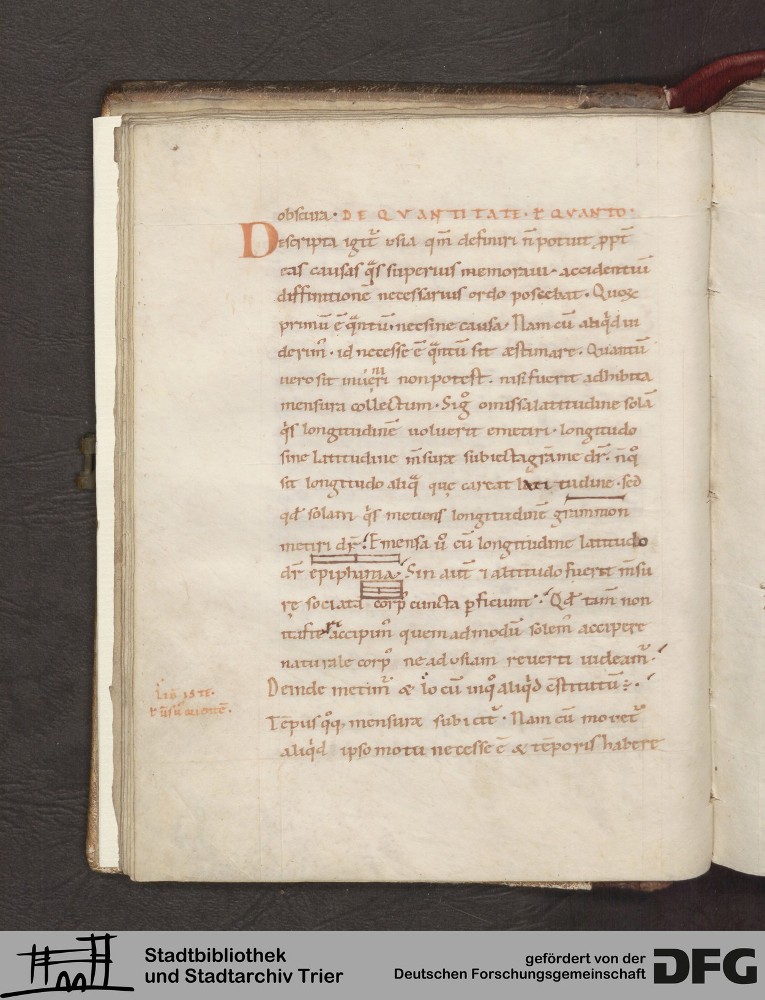 obscura · DE QVANTITATE · ł QVANTO ·
Descripta igit᷑ usia qm̄ definiri n̄ potuit ꝓpt̄
eas causas q̄s superius memoraui · accidentiū
diffinitionē necessarius ordo poscebat · Quoꝝ
primū ē q̄ntū · nec sine causa · Nam cū aliqͥd ui
derim᷒ · id necesse ē q̄ntū sit æstimare · Quantū
uero sit inueniri non potest · nisi fuerit adhibita
mensura collectum · Sigͦ omissa latitudine solā
q̄s longitudinē uoluerit emetiri · longitudo
sine latitudine m̄suræ subiecta gram̄e dr̄ · n̄ qͦ
sit longitudo aliq̄ que careat latitudine · sed
qd̄ solam q̄s metiens longitudinē grammon
metiri dr̄ · Emensa ū cū longitudine latitudo
dr̄ epiphania · Sin aut̄ ⁊ altitudo fuerit m̄su
rę sociata corp᷒ cuncta ꝑficiunt · Qd̄ tam̄ non
ita accipim᷒ quemadmodū solem᷒ accipere
naturale corp᷒ ne ad usiam reuerti uideam᷒ ·
Deinde metim᷒ & cū inqͦ aliqͥd c̄stitutū ·
Tēpus qͦq, mensuræ subicit᷑ · Nam cū mouet᷑
aliqͥd ipso motu necesse ē & tēporis habere
iste ·
Stadtbibliothek
und Stadtarchiv Trier
gefördert von der
Deutschen Forschungsgemeinschaft
DFG